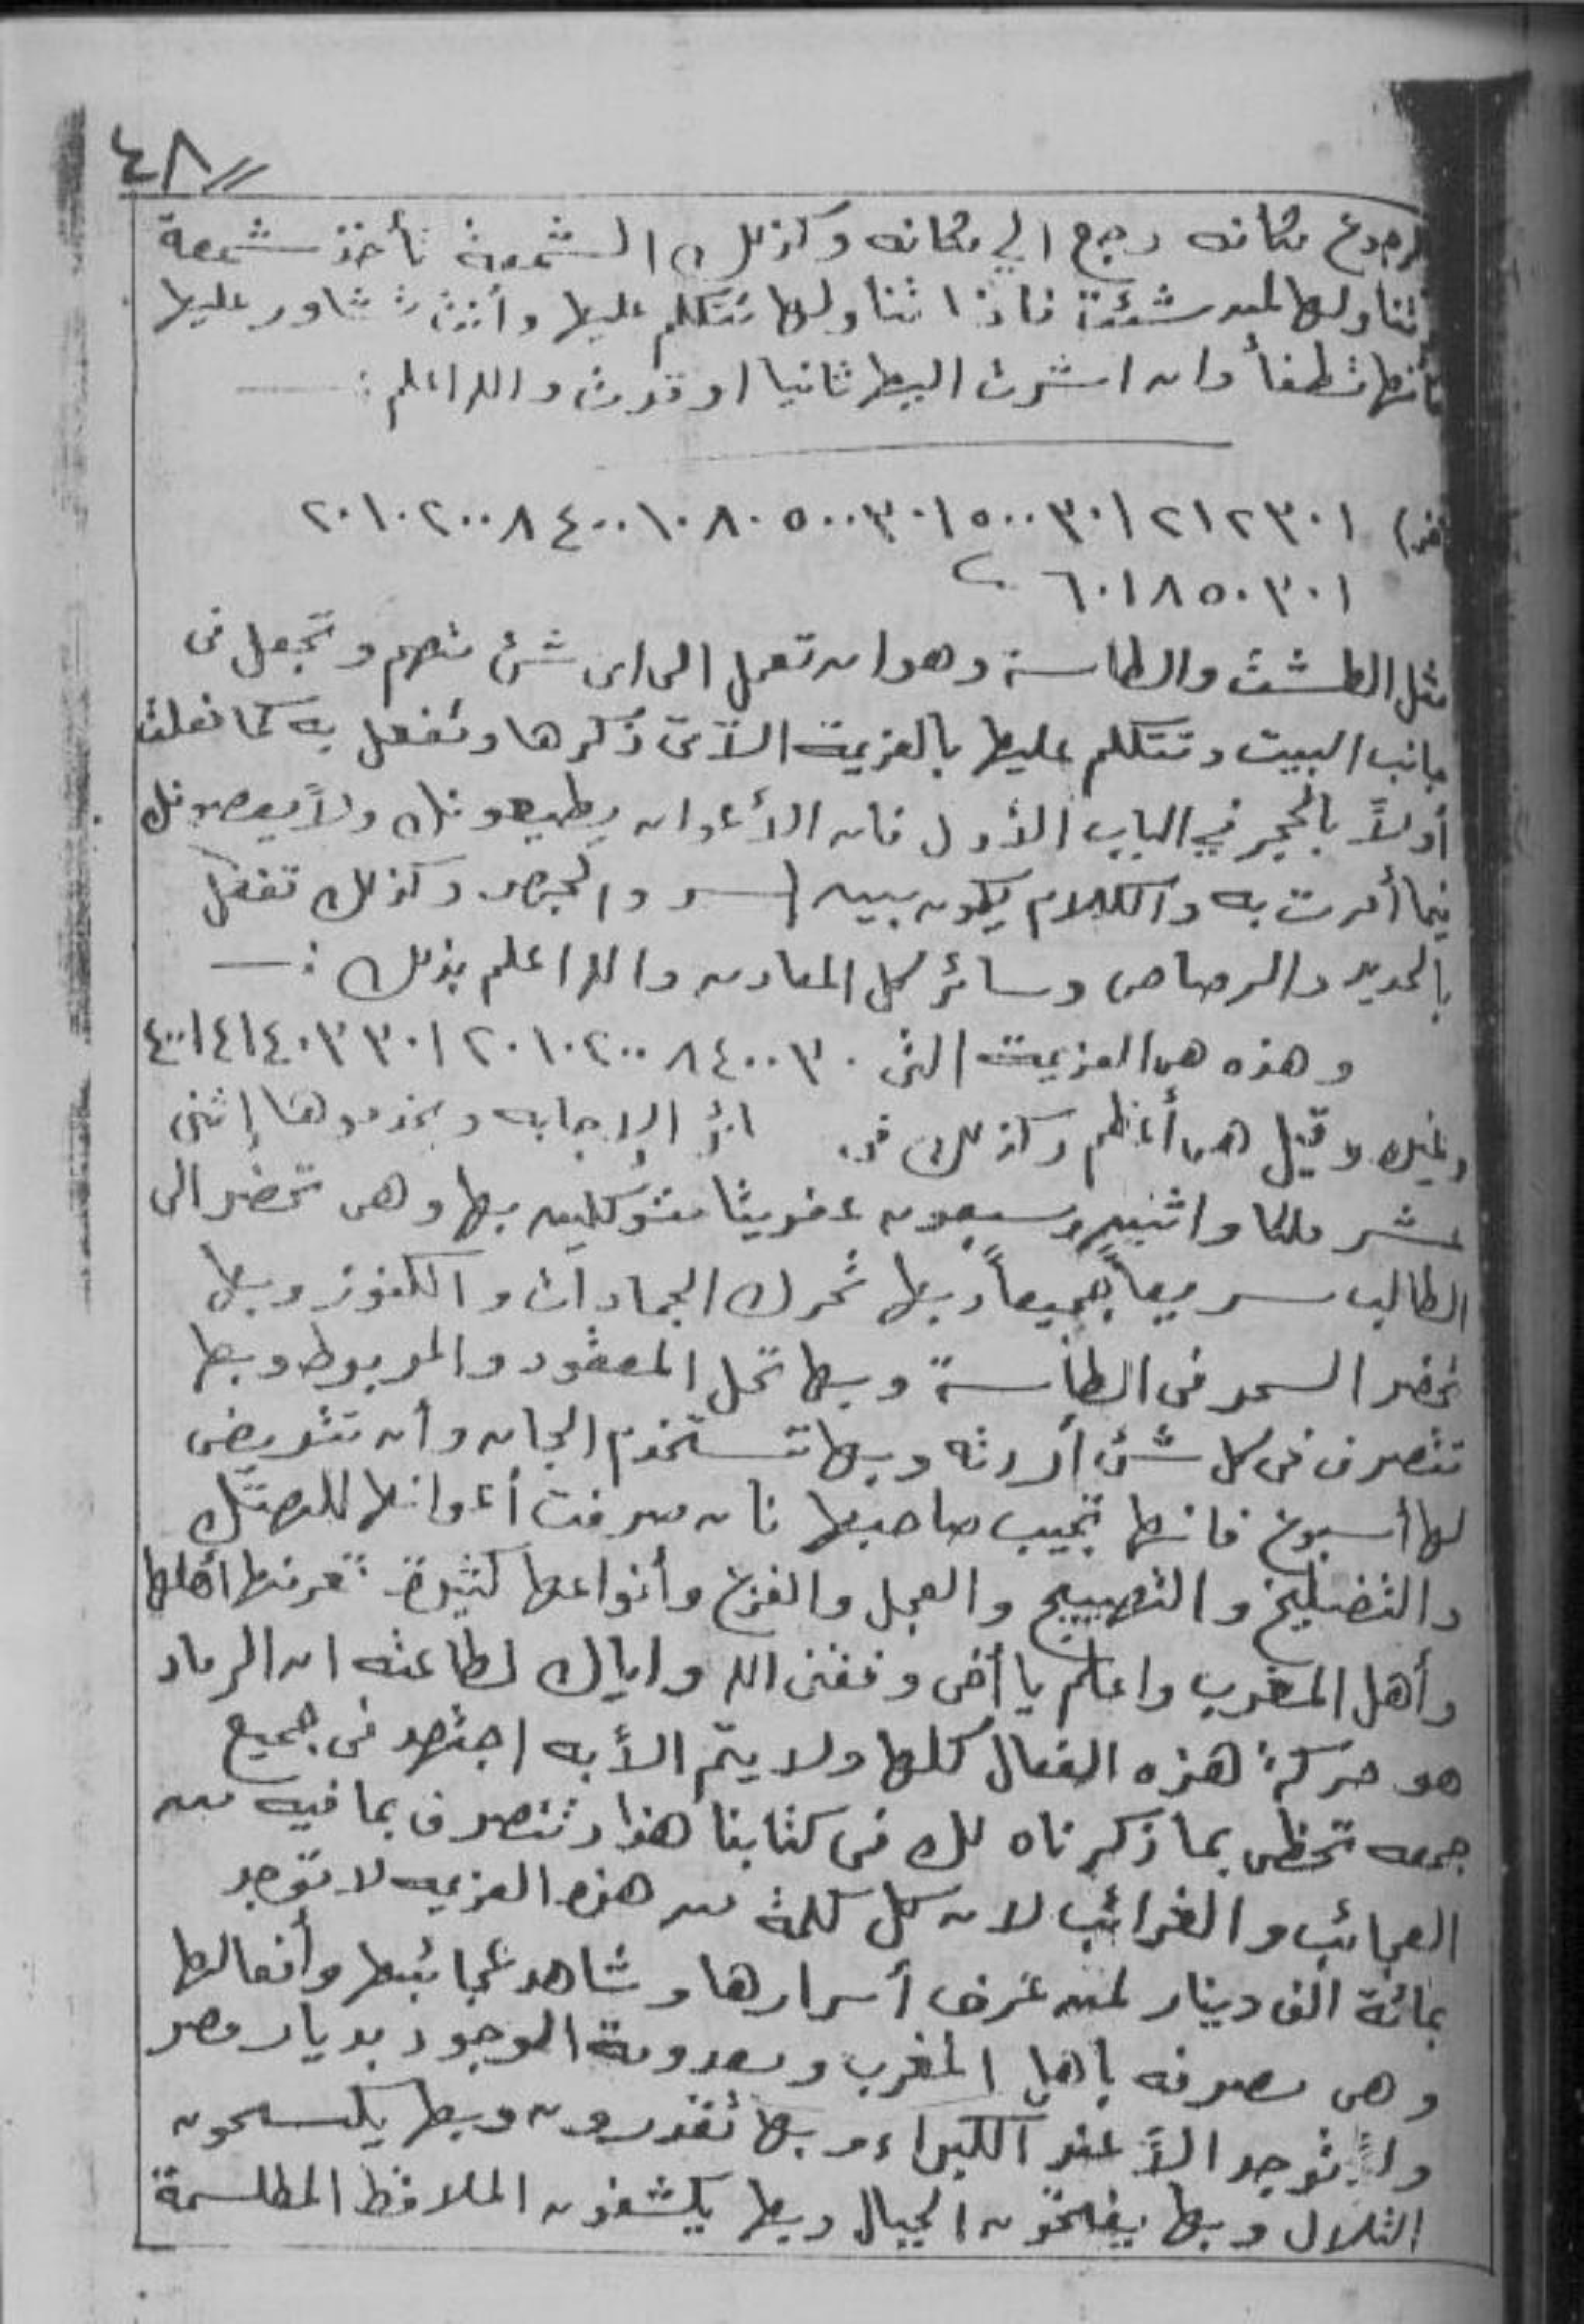 ٤٨
لرجوع مكانه رجع الي مكانه وكذلك الشمعة تأخذ شمعة
تناولها لمن شئت فاذا تناولها تتكلم عليها وأنت تشاور عليها
فأنها تطفأ وان اشرت اليها ثانيا اوقدت والله اعلم :
٣٠١ ٢ ١ ٢ ٣٠١ ٥٠٠ ٣٠١ ٥٠٠ ٨٠ ١٠ ٤٠٠ ٨ ٢٠٠ ١٠ ٢٠
٣٠١ ٥٠ ٨ ١ ٦٠
مثل الطشت والطاسة وهو ان تعمل الى اى شئ منهم وتجعل فى
جانب البيت وتتكلم عليها بالعزيمة الآتى ذكرها وتفعل به كما فعلت
أولاً بالحجر في الباب الأول فان الأعوان يطيعونك ولا يعصونك
فيما أمرت به والكلام يكون بين السر والجهر وكذلك تفعل
بالحديد والرصاص وسائر كل المعادن والله اعلم بذلك :
وهذه هى العزيمة التى ٣٠ ٤٠٠ ٨ ٢٠٠ ١٠ ٢٠ ٣٠١ ٣ ٤٠ ١ ٤ ١ ٤٠٠
وقيل هى أعظم وكذلك الإجابه ويخدموها إثنى
عشر ملكا واثنين وسبعون عفريتا متوكلين بها وهى تحضر الى
الطالب سريعاً جميعاً وبها تحرك الجمادات والكنوز وبها
تحضر السحر فى الطاسة وبها تحل المعقود والمربوط وبها
تتصرف فى كل شئ أردته وبها تستخدم الجان وأن تتريض
لها أسبوع فانها تجيب صاحبها فان صرفت أعوانها للهتك
والتضليخ والتهييج والعجل والفزع وأنواعها كثيرة تعرفها أهلها
وأهل المغرب واعلم يا أخى وفقنى الله واياك لطاعته ان الرماد
هو حركة هذه الفعال كلها ولا يتم الأ به اجتهد فى جميع
جمعه تحظى بما ذكرناه لك فى كتابنا هذا وتتصرف بما فيه من
العجائب والغرائب لان كل كلمة من هذه العزيمه لا توجد
بمائة الف دينار لمن عرف أسرارها وشاهد عجائبها وأفعالها
وهى معروفه بأهل المغرب ومعدومة الوجود بديار مصر
ولا توجد الأ عند الكبراء وبها تقدرون وبها يكسحون
التلال وبها يفتحون الجبال وبها يكشفون الملاقط المطلسمة